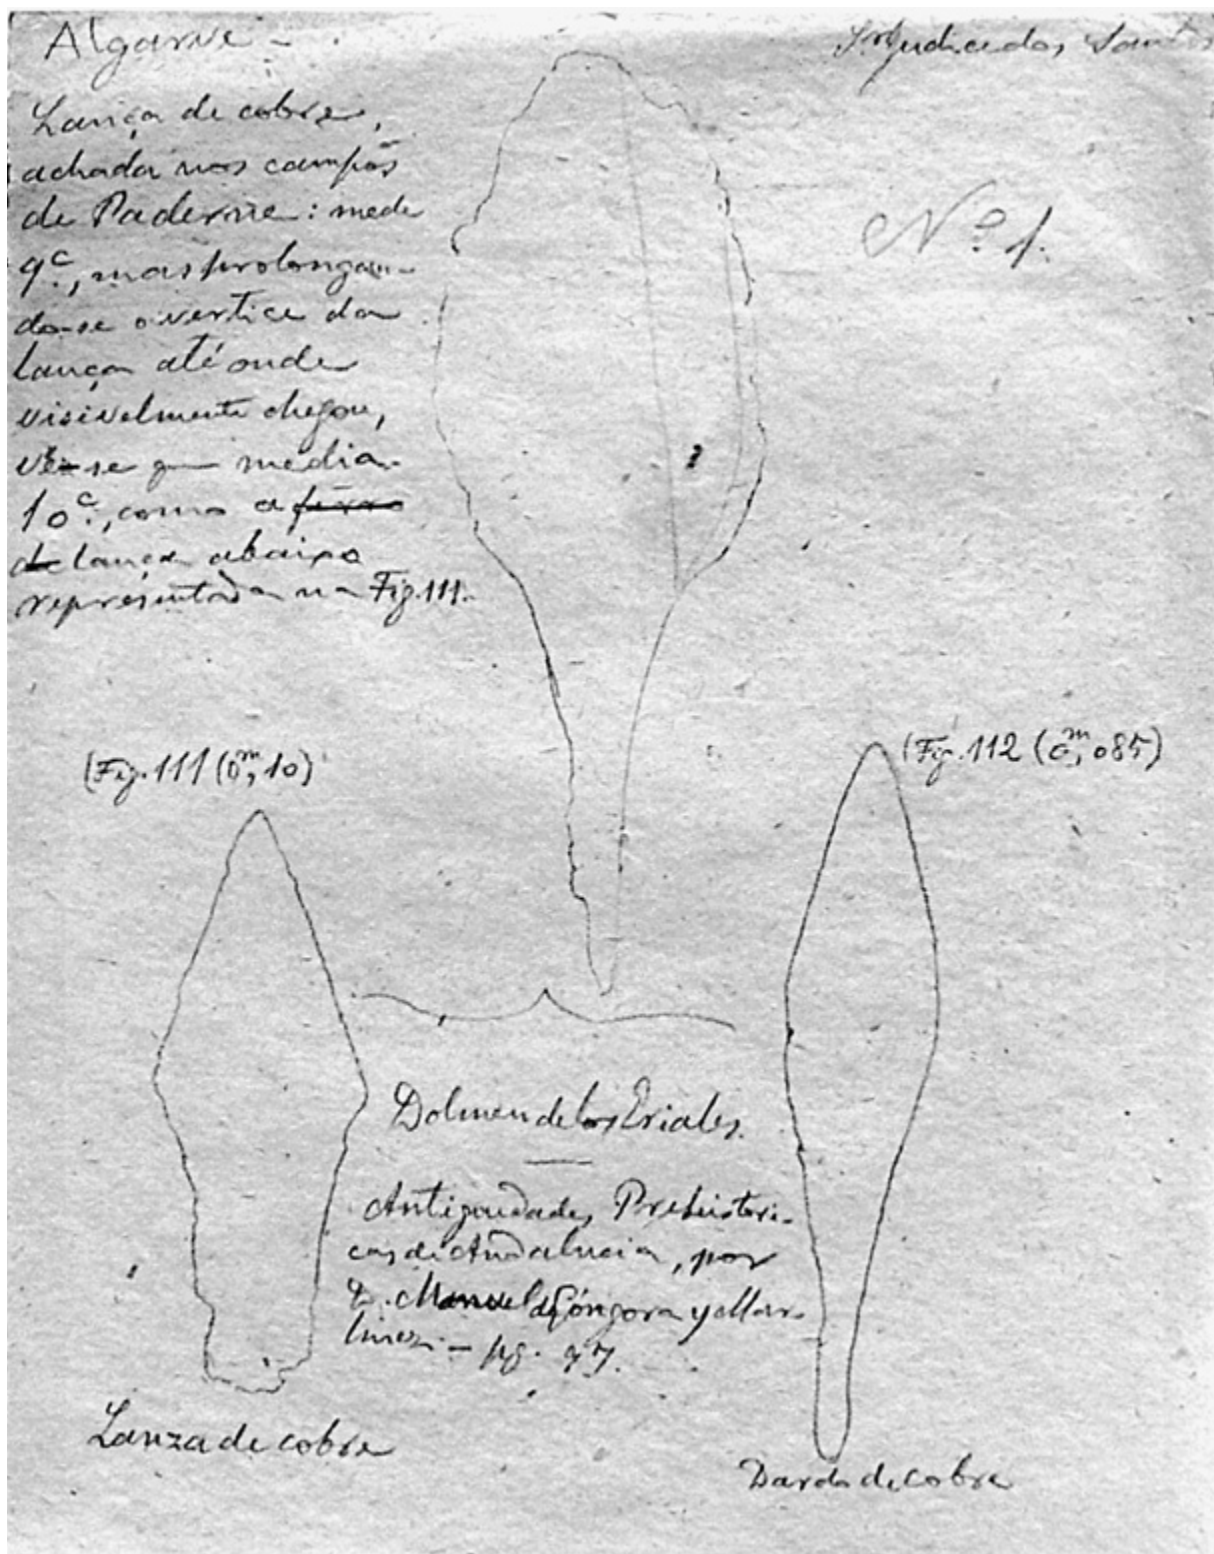 Algarve -
Sr. Judice dos Santos
Lança de cobre,
achada nos campos
de Paderne: mede
9c., mas prolongan-
do-se o vertice da
lança até onde
visivelmente chegou,
vê-se que media
10c., como a ferro
de lança abaixo
representada na Fig. 111.
Nº 1.
(Fig. 111 (0m, 10)
(Fig. 112 (0m, 085)
Dolmen de los Eriales.
Antiguedades Prehistori-
cas de Andalucia, por
D. Manuel de Góngora y Mar-
tinez. - pg.
Lanza de cobre
Dardo de cobre